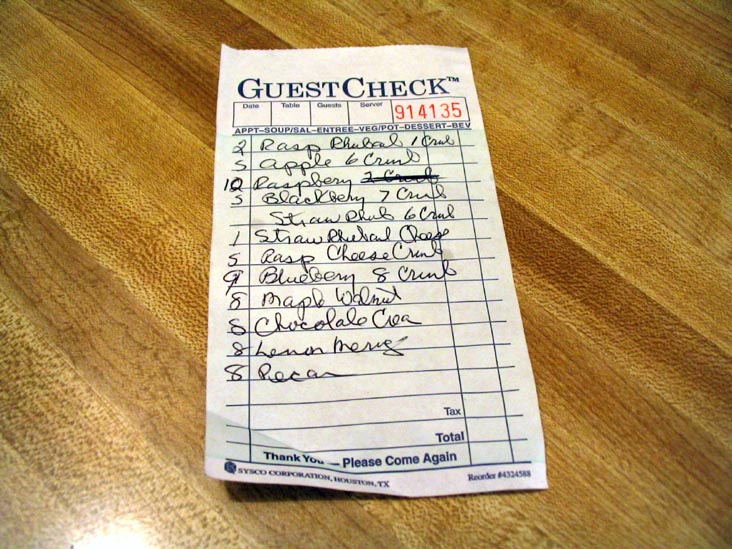 GUEST CHECK™
Date Table Guests Server 914135
APPT-SOUP/SAL-ENTREE-VEG/POT-DESSERT-BEV
2 Rasp Rhubal 1 Crub
5 apple 6 Crumb
10 Raspbery
5 Blackbery 7 Crub
Straw Rhub 6 Crub
1 Straw Rhubal Cheese
5 Rasp Cheese Crub
9 Bluebery 8 Crumb
8 Maple Walnut
8 Chocolate Crea
8 Lemon Mering
8 Pecan
Tax
Total
Thank You — Please Come Again
SYSCO CORPORATION, HOUSTON, TX Reorder #4324588